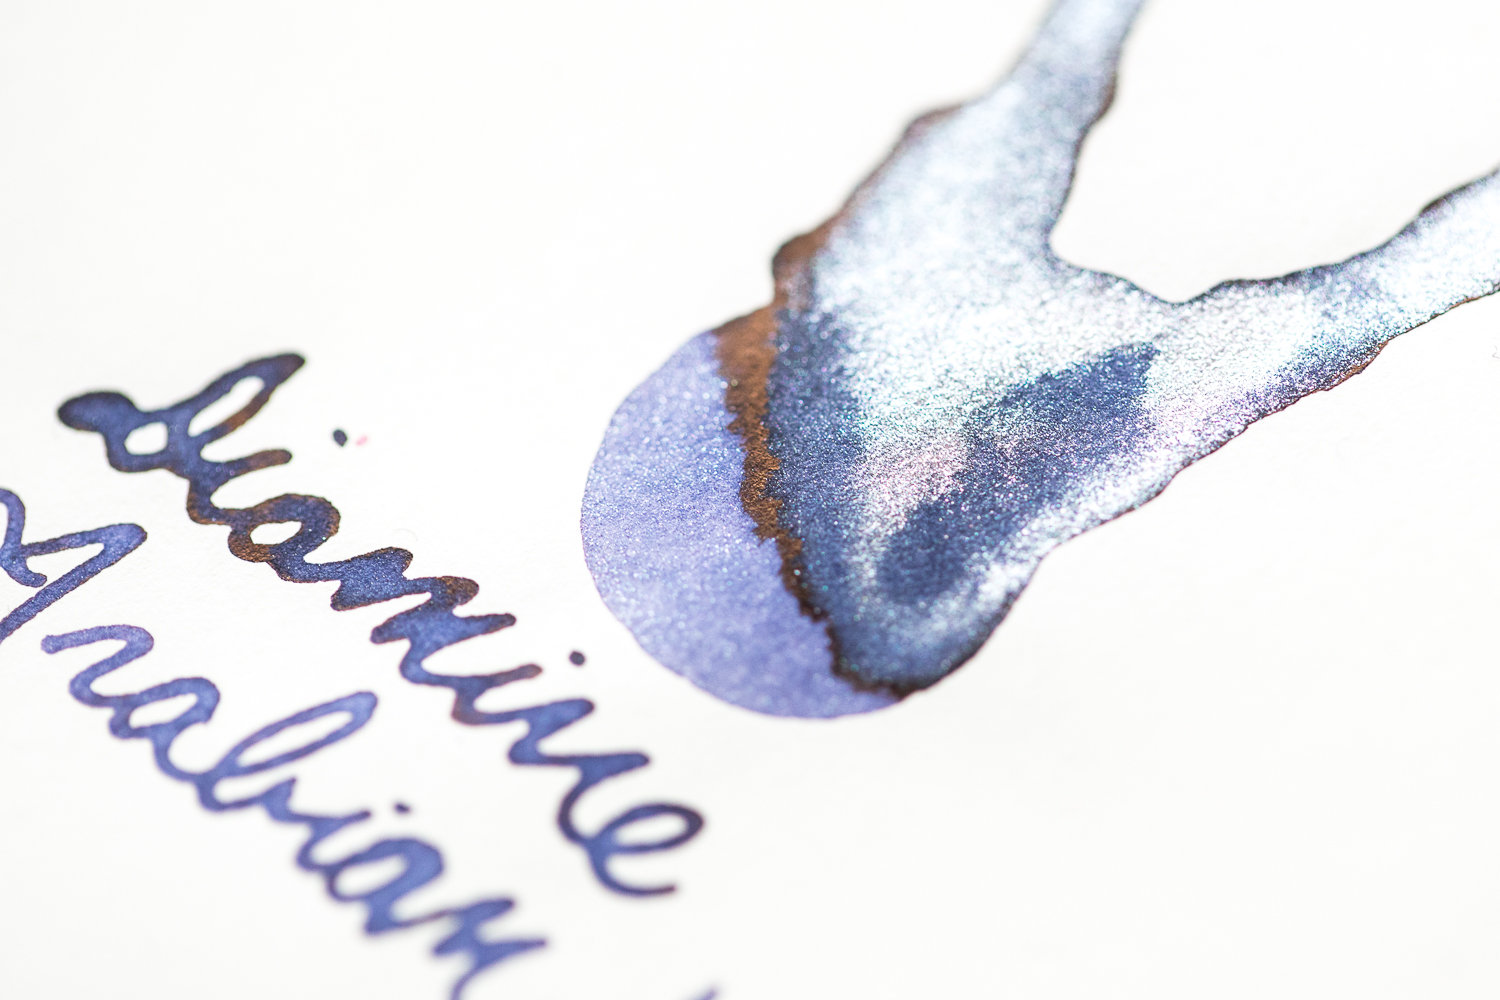 diamine
Arabian